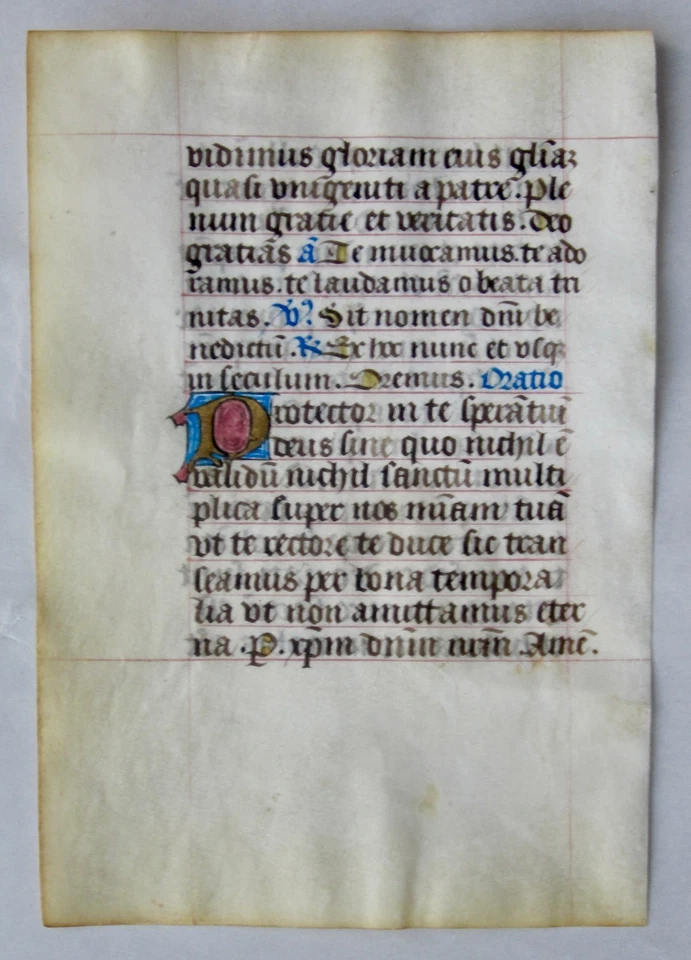 vidimus gloriam eius gl̄iaꝫ
quasi vnigeniti a patre. Ple
num gratie et veritatis. Deo
gratiās ā Te inuocamus. te ado
ramus. te laudamus o beata tri
nitas. v̄? Sit nomen dn̄i be
nedictū. ℟ Ex hoc nunc et vsqꝫ
in seculum. Oremus. Oratio
Protector in te sperātiū
deus sine quo nichil ē
validū nichil sanctū multi
plica super nos mīam tuā
vt te rectore te duce sic tran
seamus per bona tempora
lia vt non amittamus eter
na. P. xp̄m dn̄m nr̄m. Amē.